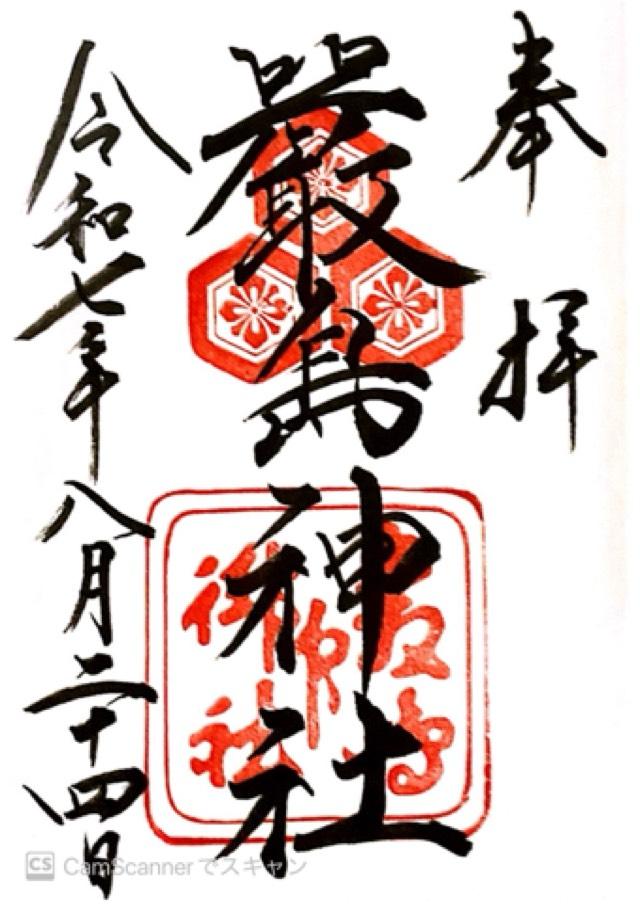 奉拝
嚴島神社
令和七年八月二十四日
CS CamScannerでスキャン